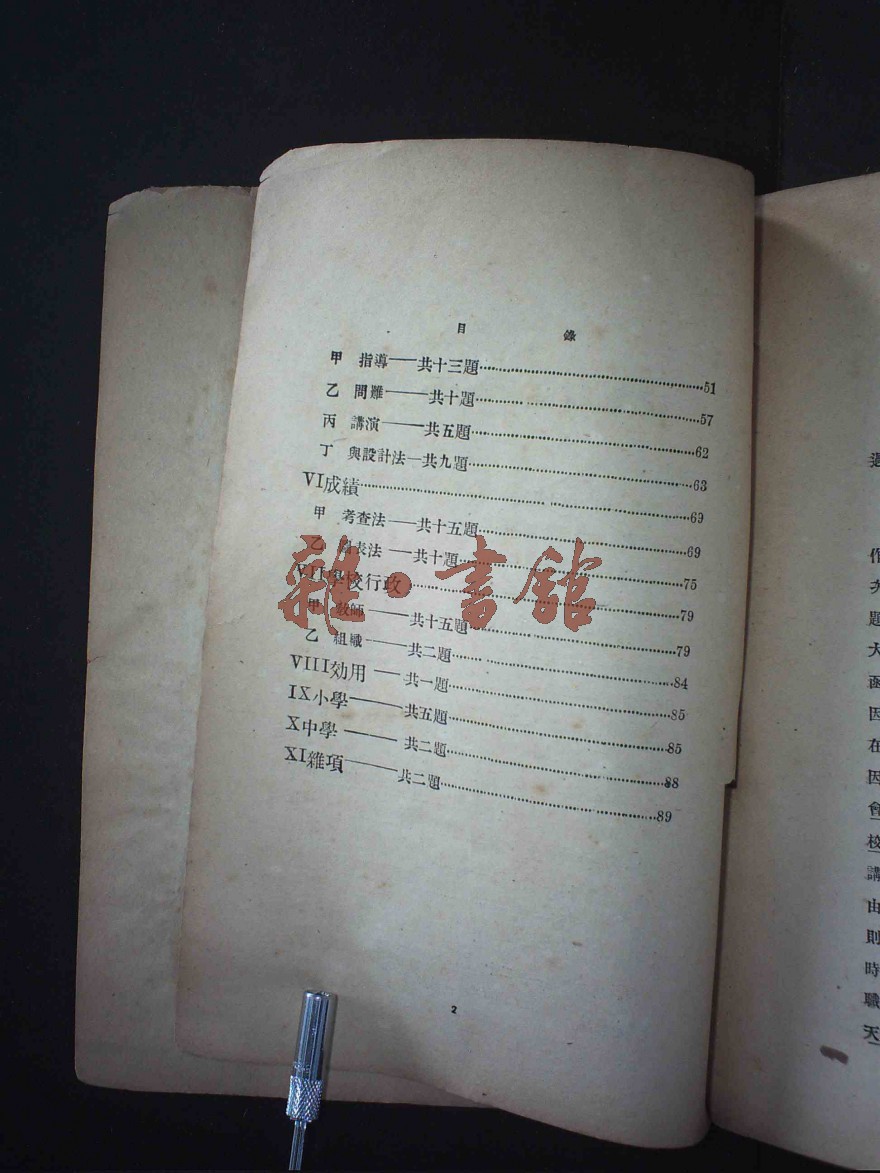 目 錄
甲 指導——共十三題……51
乙 問難——共十題……57
丙 講演——共五題……62
丁 與設計法—共九題……63
VI成績……69
甲 考查法——共十五題……69
乙 表法——共十題……75
VII學校行政……79
甲 教師——共十五題……79
乙 組織——共二題……84
VIII効用——共一題……85
IX小學——共五題……85
X中學——共二題……88
XI雜項——共二題……89
2
雜·書館
作
題
大
函
因
在
因
會
校
講
由
則
時
職
天